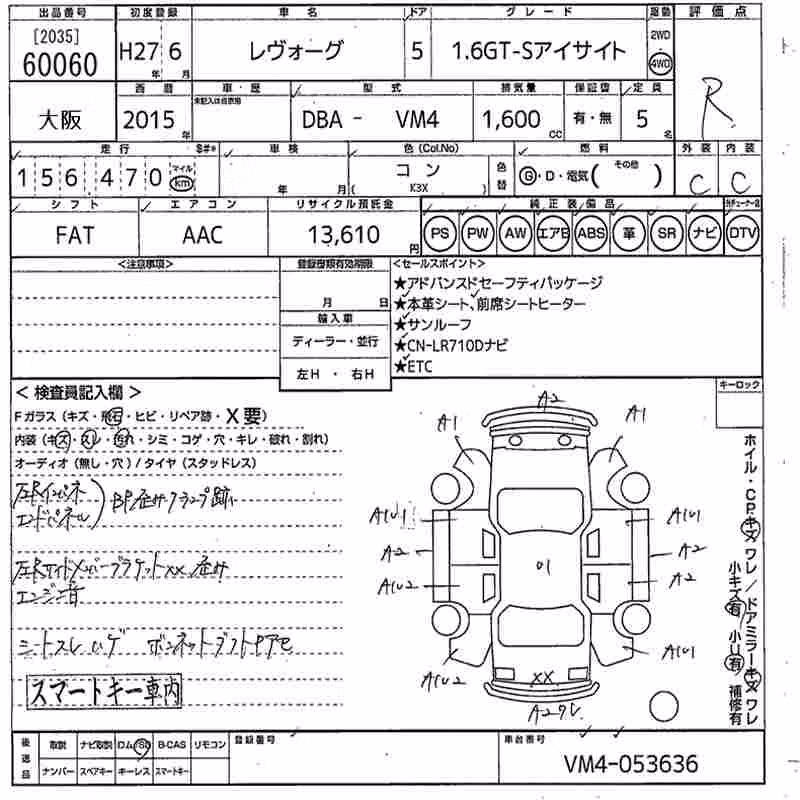 出品番号 初度登録 車名 ドア グレード 駆動 評価点
[2035] 60060 H27年 6月 レヴォーグ 5 1.6GT-Sアイサイト 2WD 4WD R
西暦 車・歴 型式 排気量 保証書 定員
未記入は自家用
大阪 2015年 DBA - VM4 1,600CC 有・無 5名
走行 $#* 車検 色(Col.No) 燃料 外装 内装
156,470 マイル km 年 月 コン (K3X) 色替 G・D・電気( その他 ) C C
シフト エアコン リサイクル預託金 純正装備品
FAT AAC 13,610円 PS PW AW エアB ABS 革 SR ナビ DTV
<注意事項> 登録書類有効期限 <セールスポイント>
★アドバンスドセーフティパッケージ
月 日 ★本革シート、前席シートヒーター
輸入車 ★サンルーフ
ディーラー・並行 ★CN-LR710Dナビ
左H・右H ★ETC
<検査員記入欄> キーロック
Fガラス(キズ・飛石・ヒビ・リペア跡・X要)
内装(キズ・スレ・汚れ・シミ・コゲ・穴・キレ・破れ・割れ)
オーディオ(無し・穴)/タイヤ(スタッドレス)
左Rインパネ
エンドパネル
BP歪みクランプ跡
左Rサイドメンバーブラケットxx 歪み
エンジン音
シートスレ
スマートキー車内
A2
A1 A1
A1U1 A1U1
A2 A2
A1U2 A2
01
A1U2 A1U1
XX
A2ワレ
ホイル・CPキズワレ/ドアミラーキズワレ
小キズ有 小U有 補修有
後送品 取説 ナビ取説 ロム/SD B-CAS リモコン 登録番号 車台番号
ナンバー スペアキー キーレス スマートキー VM4-053636